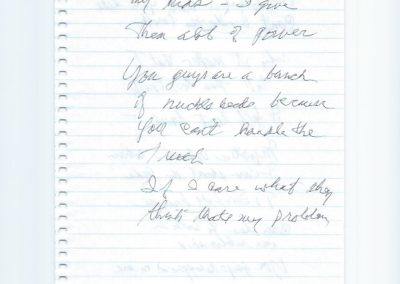 my kids - I give
Them alot of power
You guys are a bunch
of nuckle heads because
You can't handle the
Truth
If I care what they
think thats my problem